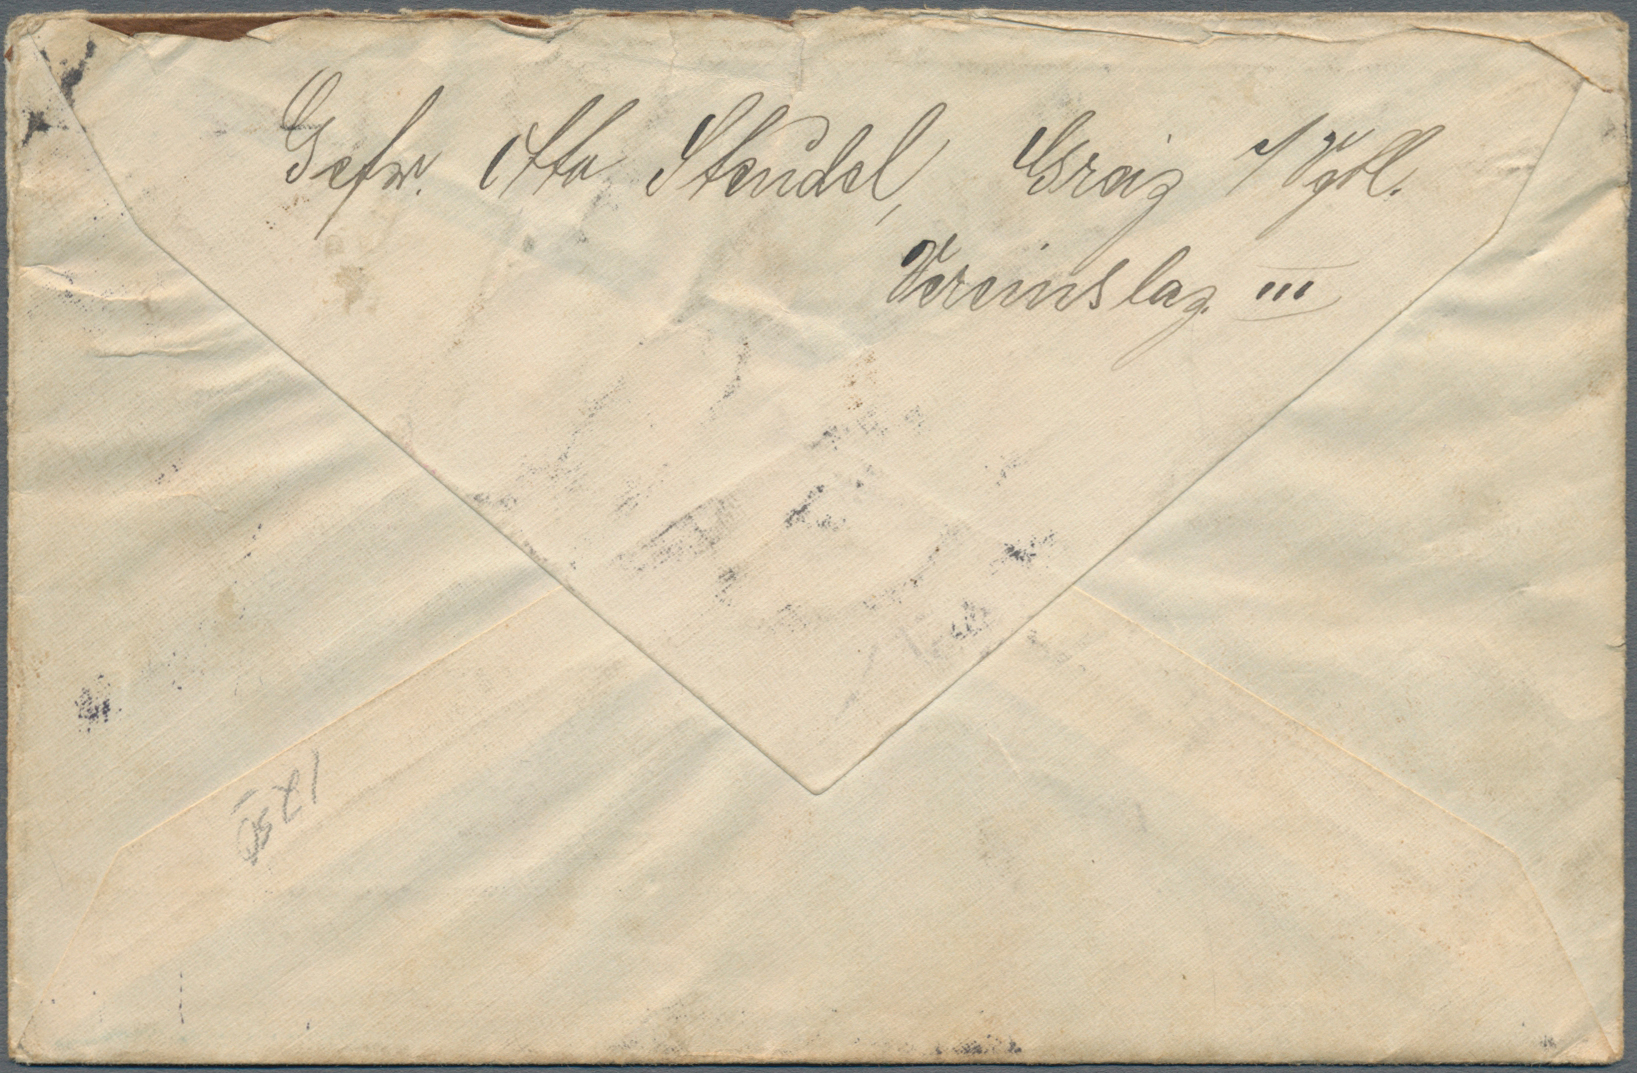 Gefr. Otto Steudel, Greiz i/Vgtl.
Vereinslaz. III